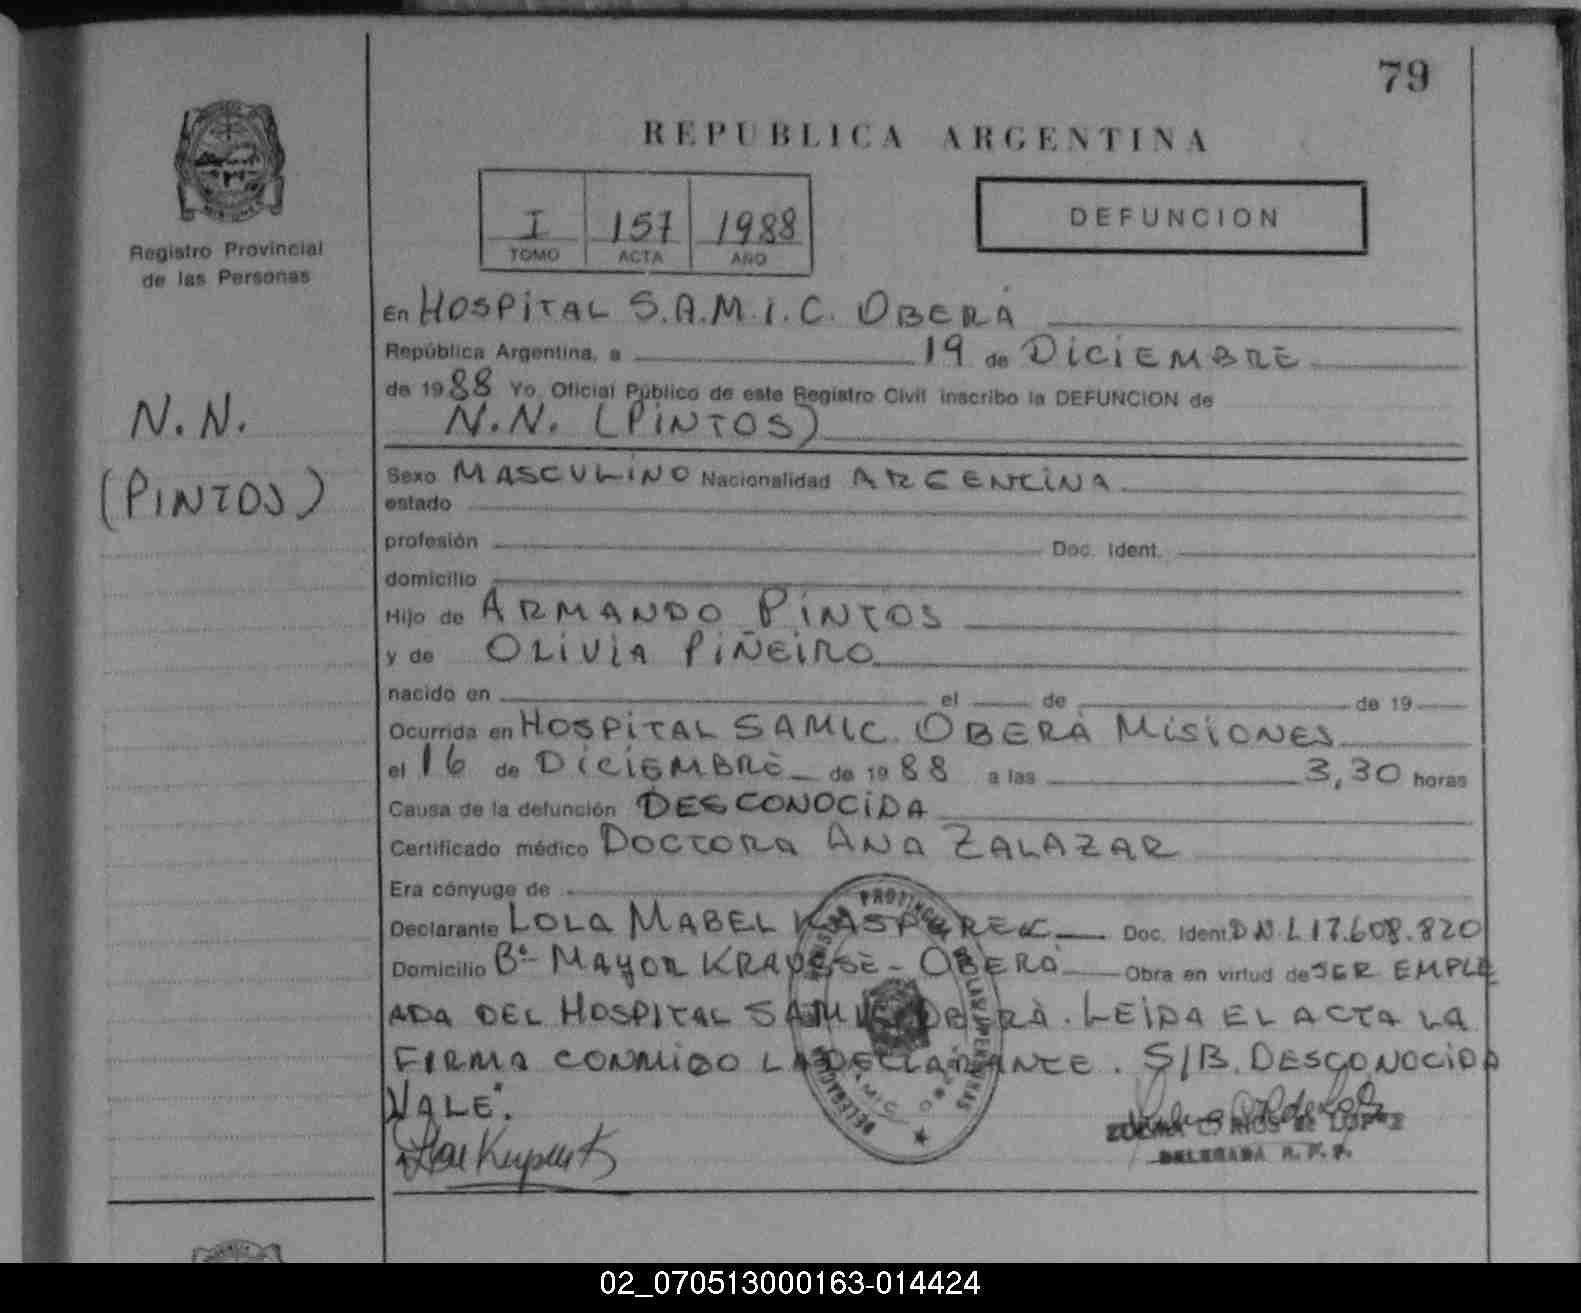 79
REPUBLICA ARGENTINA
I 157 1988
TOMO ACTA AÑO
DEFUNCION
Registro Provincial
de las Personas
N.N.
(PINTOS)
En HOSPITAL S.A.M.I.C. OBERÁ
República Argentina, a 19 de DICIEMBRE
de 1988 Yo, Oficial Público de este Registro Civil inscribo la DEFUNCION de
N.N. (PINTOS)
Sexo MASCULINO Nacionalidad ARGENTINA
estado
profesión Doc. Ident.
domicilio
Hijo de ARMANDO PINTOS
y de OLIVIA PIÑEIRO
nacido en el de de 19
Ocurrida en HOSPITAL SAMIC. OBERÁ MISIONES
el 16 de DICIEMBRE de 1988 a las 3,30 horas
Causa de la defunción DESCONOCIDA
Certificado médico DOCTORA ANA ZALAZAR
Era cónyuge de
Declarante LOLA MABEL KASPAREK Doc. Ident. D.N.I. 17.608.820
Domicilio Bº MAYOR KRAUSSE - OBERÁ Obra en virtud de SER EMPLE
ADA DEL HOSPITAL SAMIC OBERÁ. LEIDA EL ACTA LA
FIRMA CONMIGO LA DECLARANTE. S/B. DESCONOCIDA
VALE".
ZULMA RIOS de LOPEZ
DELEGADA R. P. P.
02_070513000163-014424